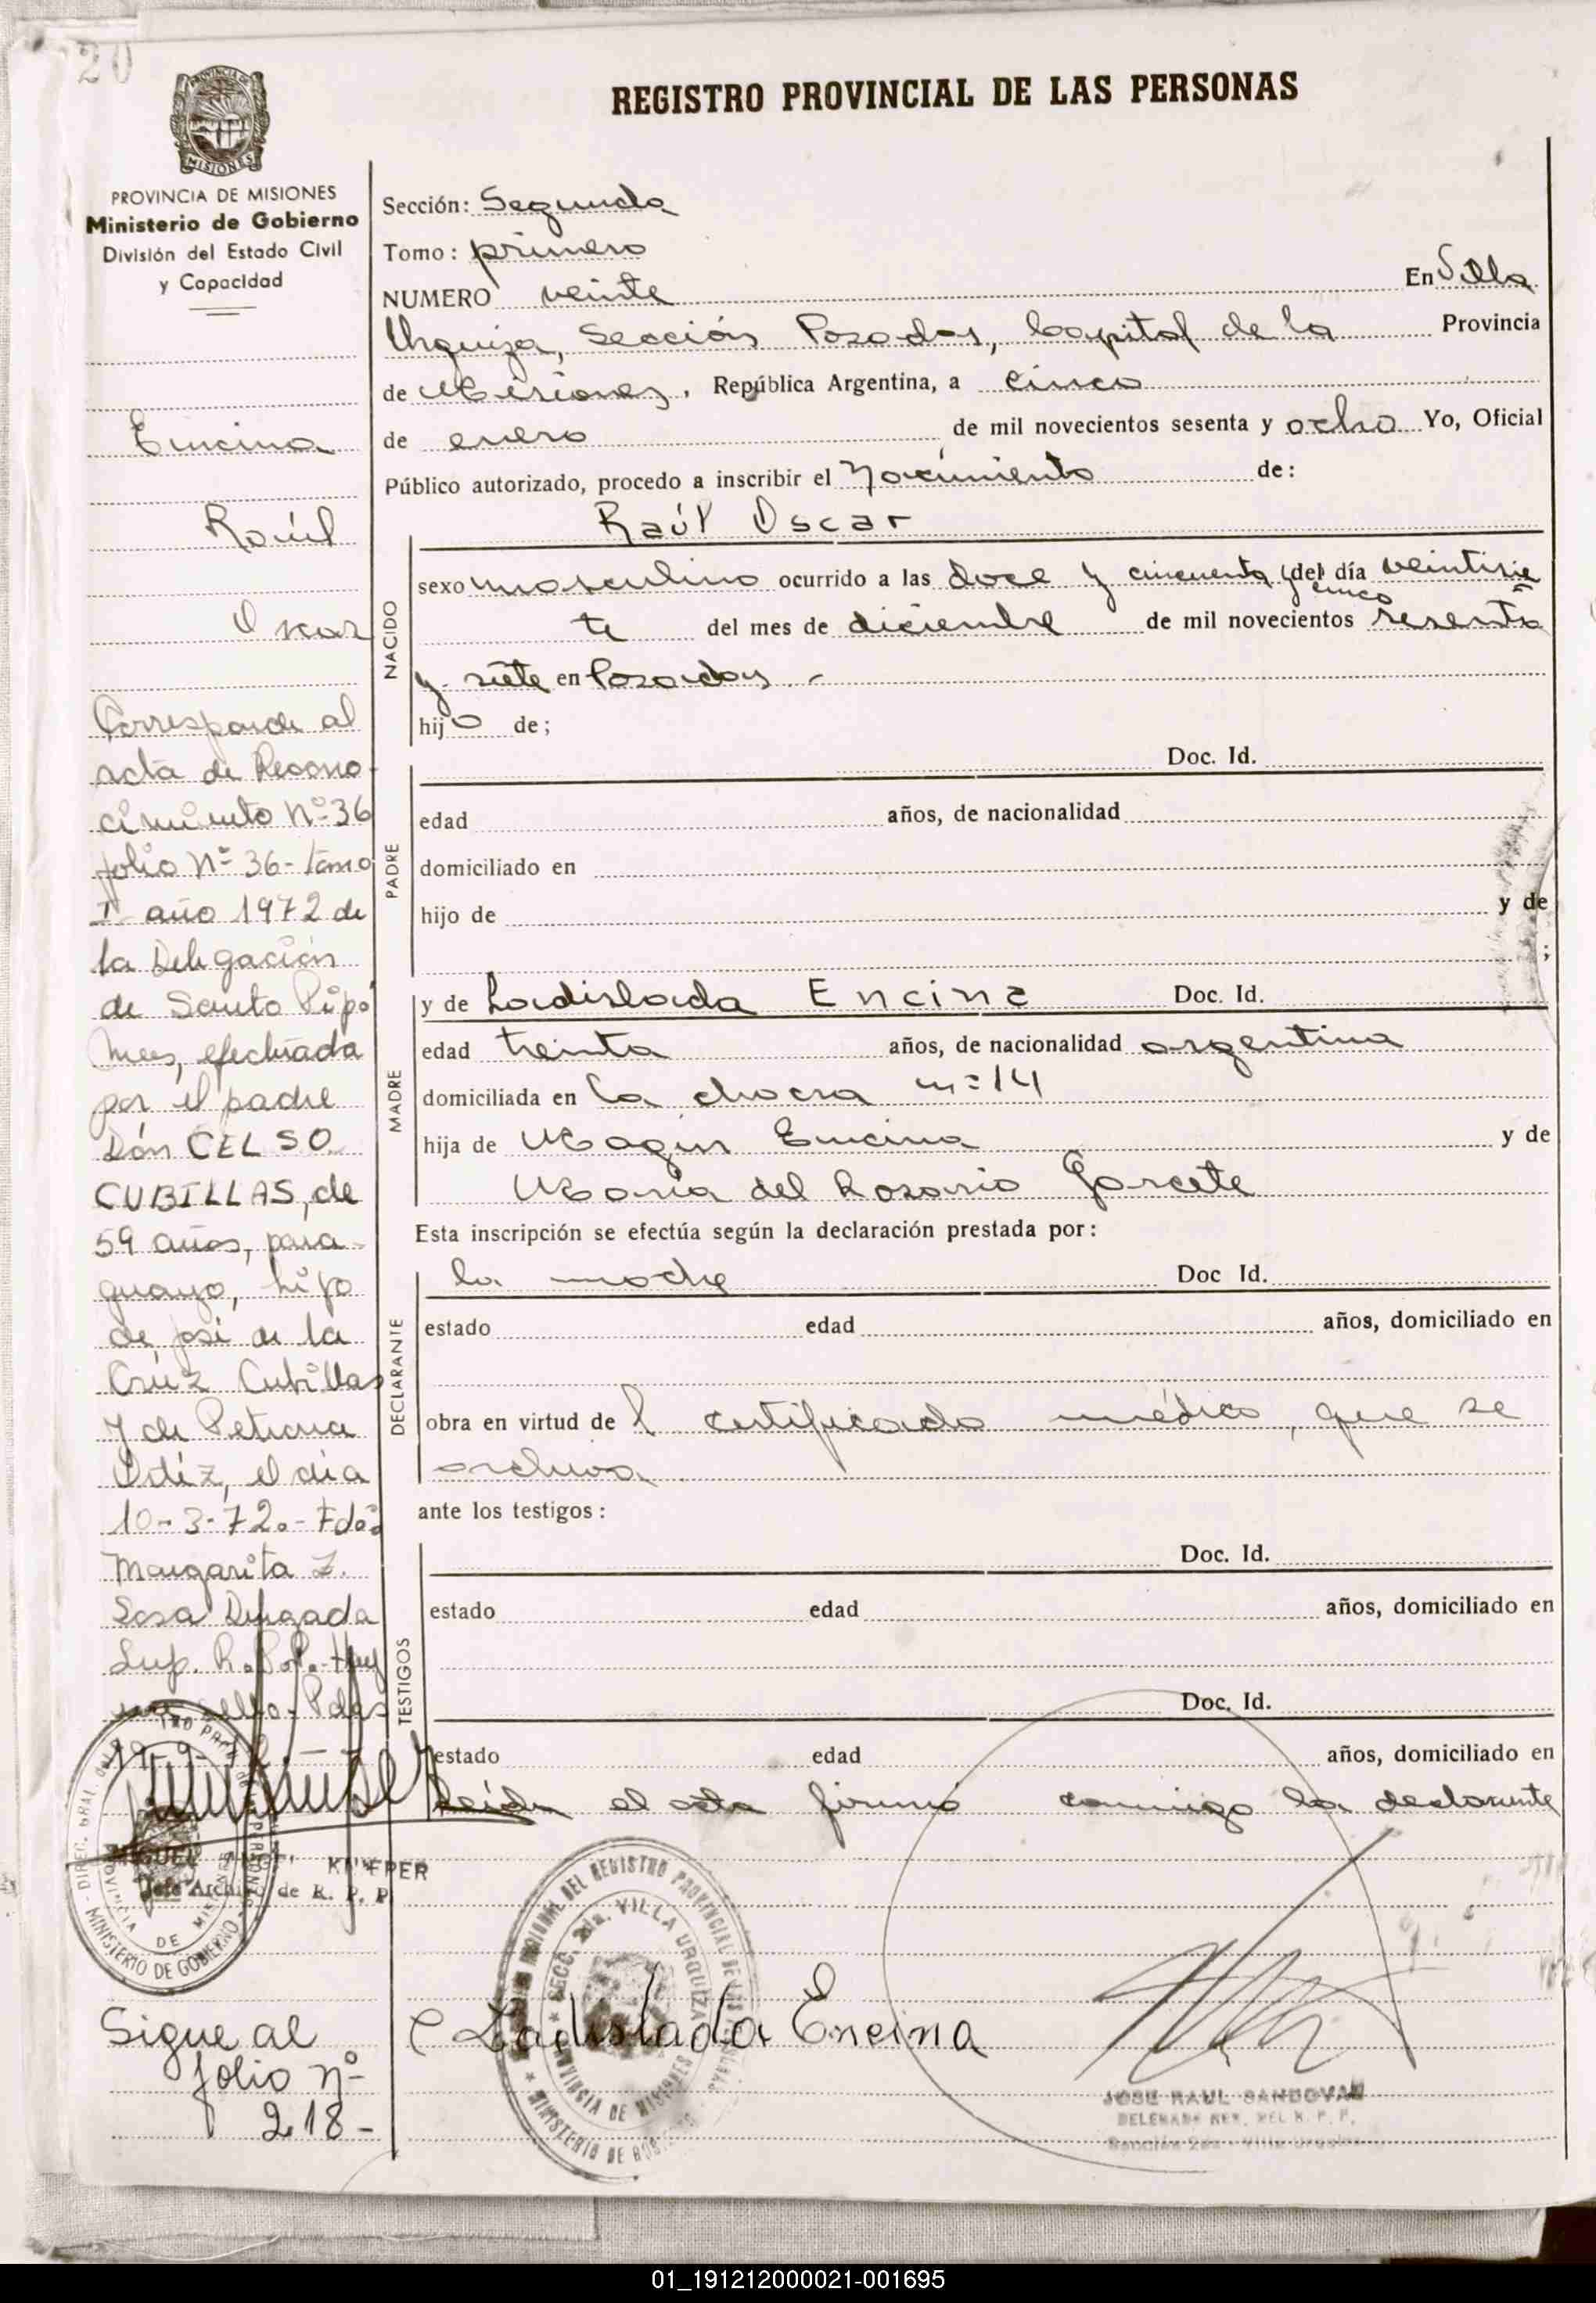 20
PROVINCIA DE
MISIONES
PROVINCIA DE MISIONES
Ministerio de Gobierno
División del Estado Civil
y Capacidad
Encina
Raúl
Oscar
Corresponde al
acta de Recono-
cimiento Nº 36
folio Nº 36 - tomo
I - año 1972 de
la Delegación
de Santo Pipó
Mnes, efectuada
por el padre
Dón CELSO
CUBILLAS, de
59 años, para-
guayo, hijo
de José de la
Crúz Cubillas
y de Petrona
Ortíz, el día
10-3-72.- Fdo:
Margarita Z.
Sosa Delegada
Sup. R.P.P. Hay
un sello - Pdas
KUEPER
Jefe Archivo de R. P. P.
MINISTERIO DE GOBIERNO
PROVINCIA DE MISIONES
Sigue al
folio nº
218-
REGISTRO PROVINCIAL DE LAS PERSONAS
Sección: Segunda
Tomo: primero
NUMERO veinte En Villa
Urquiza, Sección Posadas, Capital de la Provincia
de Misiones, República Argentina, a cinco
de enero de mil novecientos sesenta y ocho Yo, Oficial
Público autorizado, procedo a inscribir el Nacimiento de:
NACIDO
Raúl Oscar
sexo masculino ocurrido a las doce y cincuenta y cinco del día veintisie
te del mes de diciembre de mil novecientos sesenta
y siete en Posadas -
hijo de;
PADRE
Doc. Id.
edad años, de nacionalidad
domiciliado en
hijo de y de
;
MADRE
y de Ladislada Encina Doc. Id.
edad treinta años, de nacionalidad argentina
domiciliada en la chacra nº 14
hija de Magin Encina y de
María del Rosario Garcete
Esta inscripción se efectúa según la declaración prestada por:
DECLARANTE
la madre Doc Id.
estado edad años, domiciliado en
obra en virtud del certificado médico, que se
archiva
ante los testigos:
TESTIGOS
Doc. Id.
estado edad años, domiciliado en
Doc. Id.
estado edad años, domiciliado en
Leída el acta firmó conmigo la declarante
DEL REGISTRO PROVINCIAL DE LAS
SECC. 2da. VILLA URQUIZA
PROVINCIA DE MISIONES
MINISTERIO DE
Ladislada Encina
JOSE RAUL SANDOVAL
DELEGADO DEL R. P. P.
Sección 2da - Villa Urquiza
01_191212000021-001695